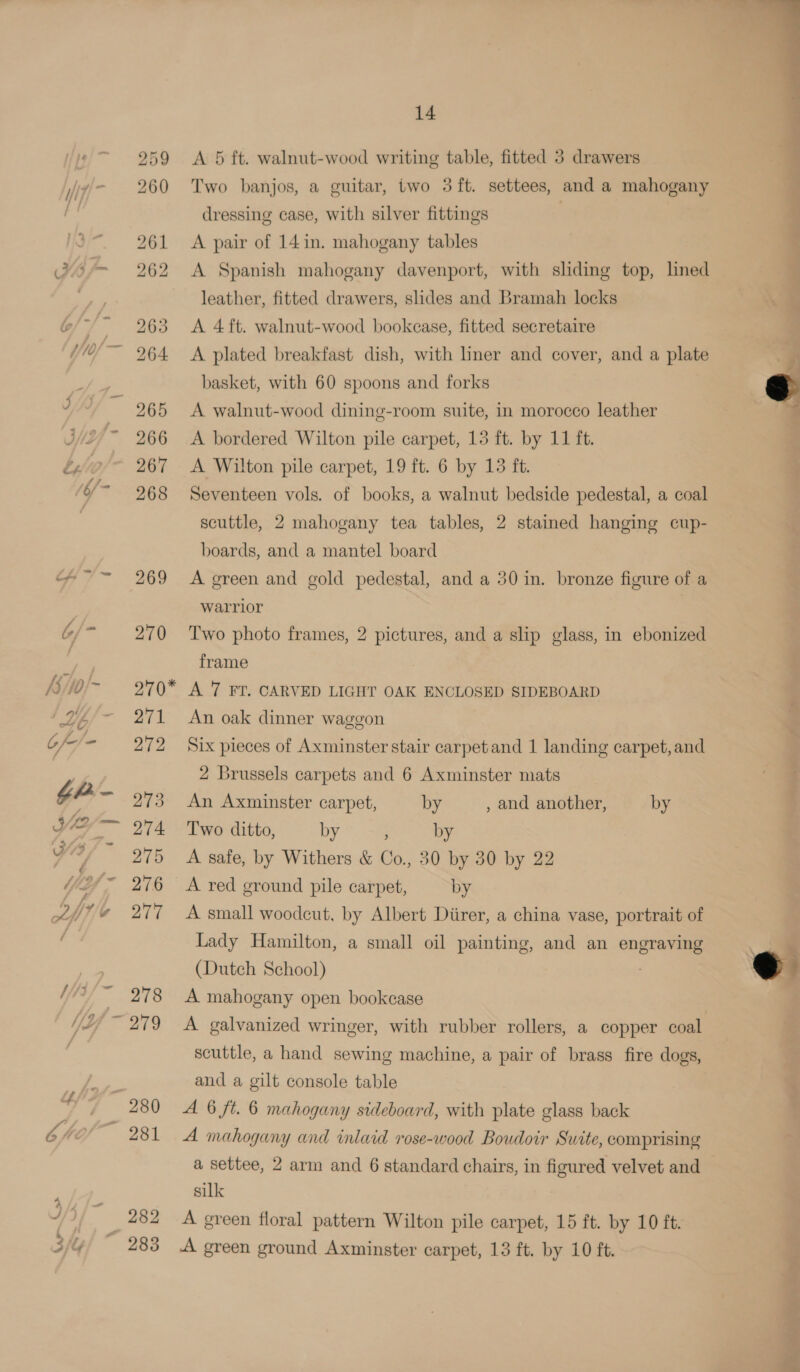 14
259 A 5 ft. walnut-wood writing table, fitted 3 drawers
260 Two banjos, a guitar, two 3 ft. settees, and a mahogany
dressing case, with silver fittings
261 A pair of 14 in. mahogany tables
262 A Spanish mahogany davenport, with sliding top, lined
leather, fitted drawers, slides and Bramah locks
263 A 4 ft. walnut-wood bookcase, fitted secretaire
264 A plated breakfast dish, with liner and cover, and a plate
basket, with 60 spoons and forks
265 A walnut-wood dining-room suite, in morocco leather
266 A bordered Wilton pile carpet, 13 ft. by 11 ft.
267 A Wilton pile carpet, 19 ft. 6 by 13 ft.
268 Seventeen vols. of books, a walnut bedside pedestal, a coal
scuttle, 2 mahogany tea tables, 2 stained hanging cup-
boards, and a mantel board
269 A green and gold pedestal, and a 30 in. bronze figure of a
warrior
270 Two photo frames, 2 pictures, and a slip glass, in ebonized
frame
270* A 7 FT. CARVED LIGHT OAK ENCLOSED SIDEBOARD
271 An oak dinner waggon
272 Six pieces of Axminster stair carpet and 1 landing carpet, and
2 Brussels carpets and 6 Axminster mats
273 An Axminster carpet, by , and another, by
274 Two ditto, by , by
275 A safe, by Withers & Co., 30 by 30 by 22
276 A red ground pile carpet, by
277 A small woodcut, by Albert Dürer, a china vase, portrait of
Lady Hamilton, a small oil painting, and an engraving
(Dutch School)
278 A mahogany open bookcase
279 A galvanized wringer, with rubber rollers, a copper coal
scuttle, a hand sewing machine, a pair of brass fire dogs,
and a gilt console table
280 A 6 ft. 6 mahogany sideboard, with plate glass back
281 A mahogany and inlaid rose-wood Boudoir Suite, comprising
a settee, 2 arm and 6 standard chairs, in figured velvet and
silk
282 A green floral pattern Wilton pile carpet, 15 ft. by 10 ft.
283 A green ground Axminster carpet, 13 ft. by 10 ft.